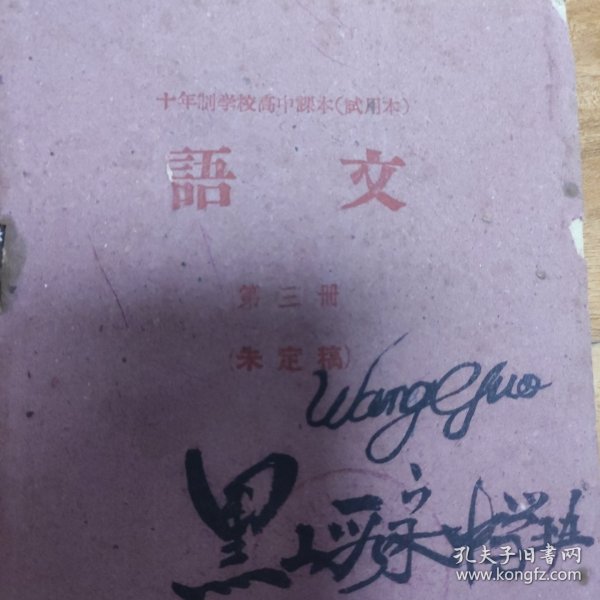 十年制学校高中課本(試用本)
語 文
第三册
(未定稿)
黑山
中学
孔夫子旧書网
www.kongfz.com